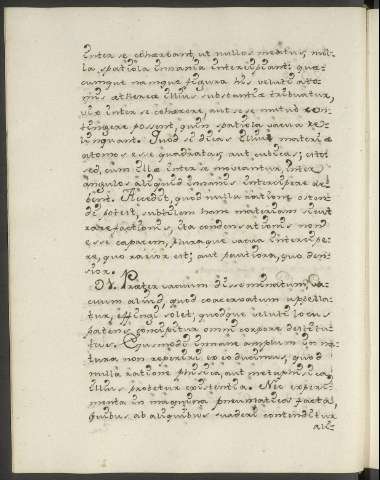 inter se cohaereant, ut nullos meatus, nul-
la spatiola inania intercipiant: quae-
cumque namque figura his veluti ato-
mis aethereae illius substantiae tribuatur,
vix inter se cohaerere, aut sese mutuo con-
tingere possent, quin spatiola vacua re-
linquant. Quod si dicas illius materiae
atomos esse quadratas, aut cubicas; cito
sed, cum illae inter se moveantur, inter
angulos aliquid inanis intercipere de-
bent. Accedit, quod nulla ratione osten-
di potest, subtilem hanc materiam sicut
rarefactionis, ita condensationis non
esse capacem, pluraque vacua intercipe-
re, quo rarior est; aut pauciora, quo den-
sior.
IV. Praeter vacuum disseminatum, va-
cuum aliud, quod coacervatum appella-
tur, effingi solet; quodque veluti locus
patens concipitur omni corpore destitu-
tus. Ejusmodi inane amplum in na-
tura non reperiri ex eo ducimus, quod
nulla ratione physica, aut metaphysica
illius probetur existentia. Nec experi-
menta in machina pneumatica facta,
quibus ab aliquibus suaderi contenditur
ali-